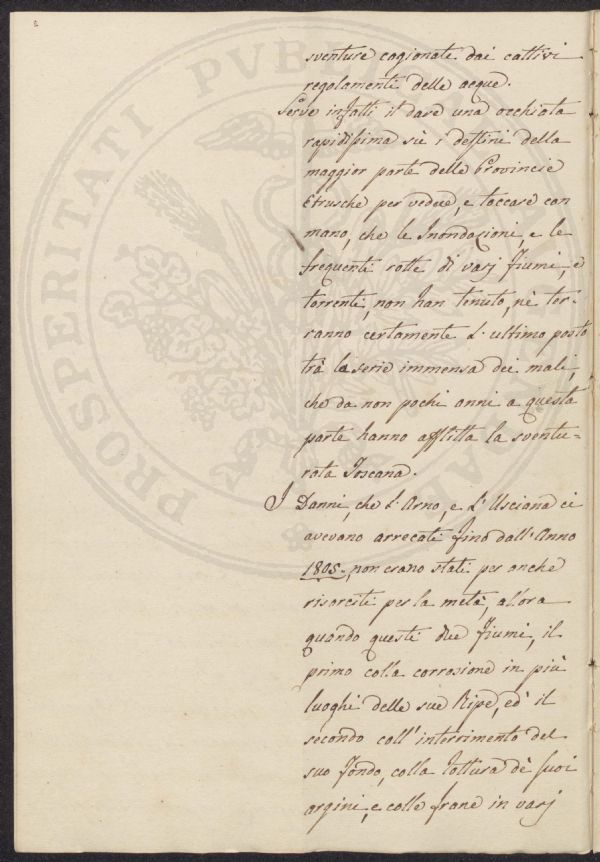 2
sventure cagionate dai cattivi
regolamenti delle acque.
Serve infatti il dare una occhiata
rapidissima sù i destini della
maggior parte delle Provincie
Etrusche per vedere, e toccare con
mano, che le Inondazioni, e le
frequenti rotte di varj fiumi, e
torrenti, non han tenuto, nè ter-
ranno certamente l'ultimo posto
trà la serie immensa dei mali,
che da non pochi anni a questa
parte hanno afflitta la sventu-
rata Toscana.
I Danni, che l'Arno, e l'Usciana ci
avevano arrecati fino dall'Anno
1805., non erano stati per anche
risarciti per la metà, allora
quando questi due fiumi, il
primo colla corrosione in più
luoghi delle sue Ripe, ed il
secondo coll'interrimento del
suo fondo, colla rottura dè suoi
argini, e colle frane in varj
PROSPERITATI PVBLICAE